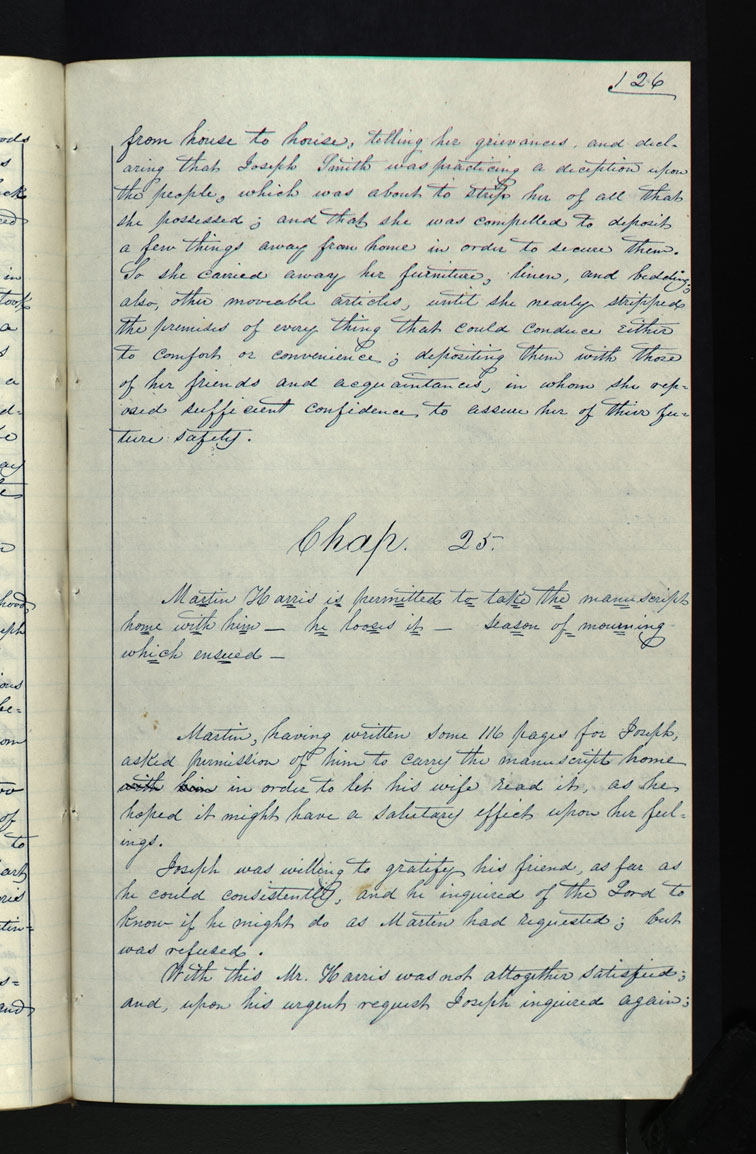 126
from house to house, telling her grievances, and decl-
aring that Joseph Smith was practicing a deception upon
the people, which was about to strip her of all that
she possessed; and that she was compelled to deposit
a few things away from home in order to secure them.
So she carried away her furniture, linen, and bedding;
also, other moveable articles, until she nearly stripped
the premises of every thing that could conduce either
to comfort or convenience; depositing them with those
of her friends and acquaintances, in whom she rep-
osed sufficient confidence, to assure her of their fu-
ture safety.
Chap. 25.
Martin Harris is permitted to take the manuscript
home with him — he looses it — Season of mourning
which ensued —
Martin, having written some 116 pages for Joseph,
asked permission of him to carry the manuscript home
with him in order to let his wife read it, as he
hoped it might have a salutary effect upon her feel-
ings.
Joseph was willing to gratify his friend, as far as
he could consistently, and he inquired of the Lord to
know if he might do as Martin had requested; but
was refused.
With this Mr. Harris was not altogether satisfied;
and, upon his urgent request Joseph inquired again;